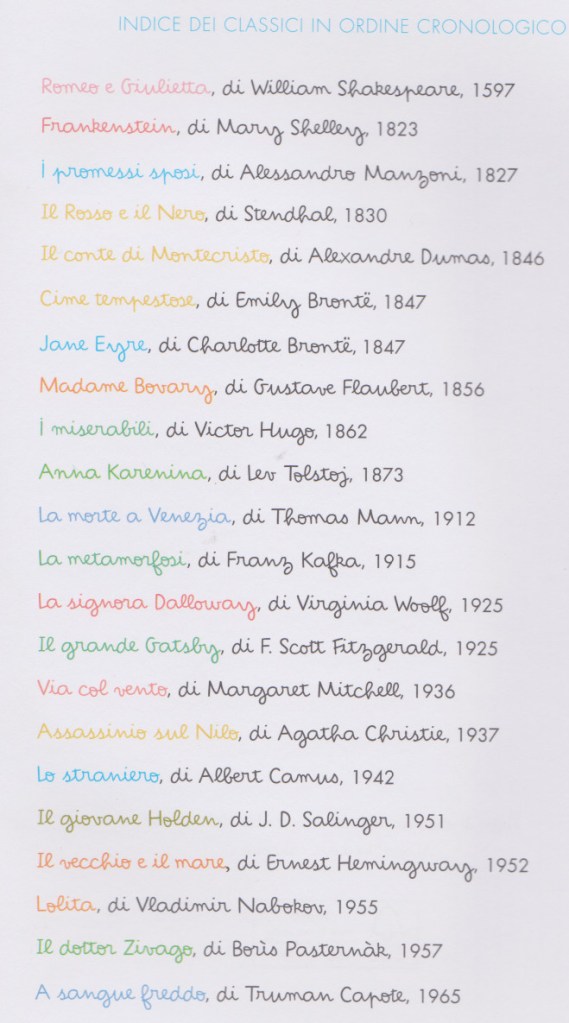 INDICE DEI CLASSICI IN ORDINE CRONOLOGICO
Romeo e Giulietta, di William Shakespeare, 1597
Frankenstein, di Mary Shelley, 1823
I promessi sposi, di Alessandro Manzoni, 1827
Il Rosso e il Nero, di Stendhal, 1830
Il conte di Montecristo, di Alexandre Dumas, 1846
Cime tempestose, di Emily Brontë, 1847
Jane Eyre, di Charlotte Brontë, 1847
Madame Bovary, di Gustave Flaubert, 1856
I miserabili, di Victor Hugo, 1862
Anna Karenina, di Lev Tolstoj, 1873
La morte a Venezia, di Thomas Mann, 1912
La metamorfosi, di Franz Kafka, 1915
La signora Dalloway, di Virginia Woolf, 1925
Il grande Gatsby, di F. Scott Fitzgerald, 1925
Via col vento, di Margaret Mitchell, 1936
Assassinio sul Nilo, di Agatha Christie, 1937
Lo straniero, di Albert Camus, 1942
Il giovane Holden, di J. D. Salinger, 1951
Il vecchio e il mare, di Ernest Hemingway, 1952
Lolita, di Vladimir Nabokov, 1955
Il dottor Zivago, di Borìs Pasternàk, 1957
A sangue freddo, di Truman Capote, 1965